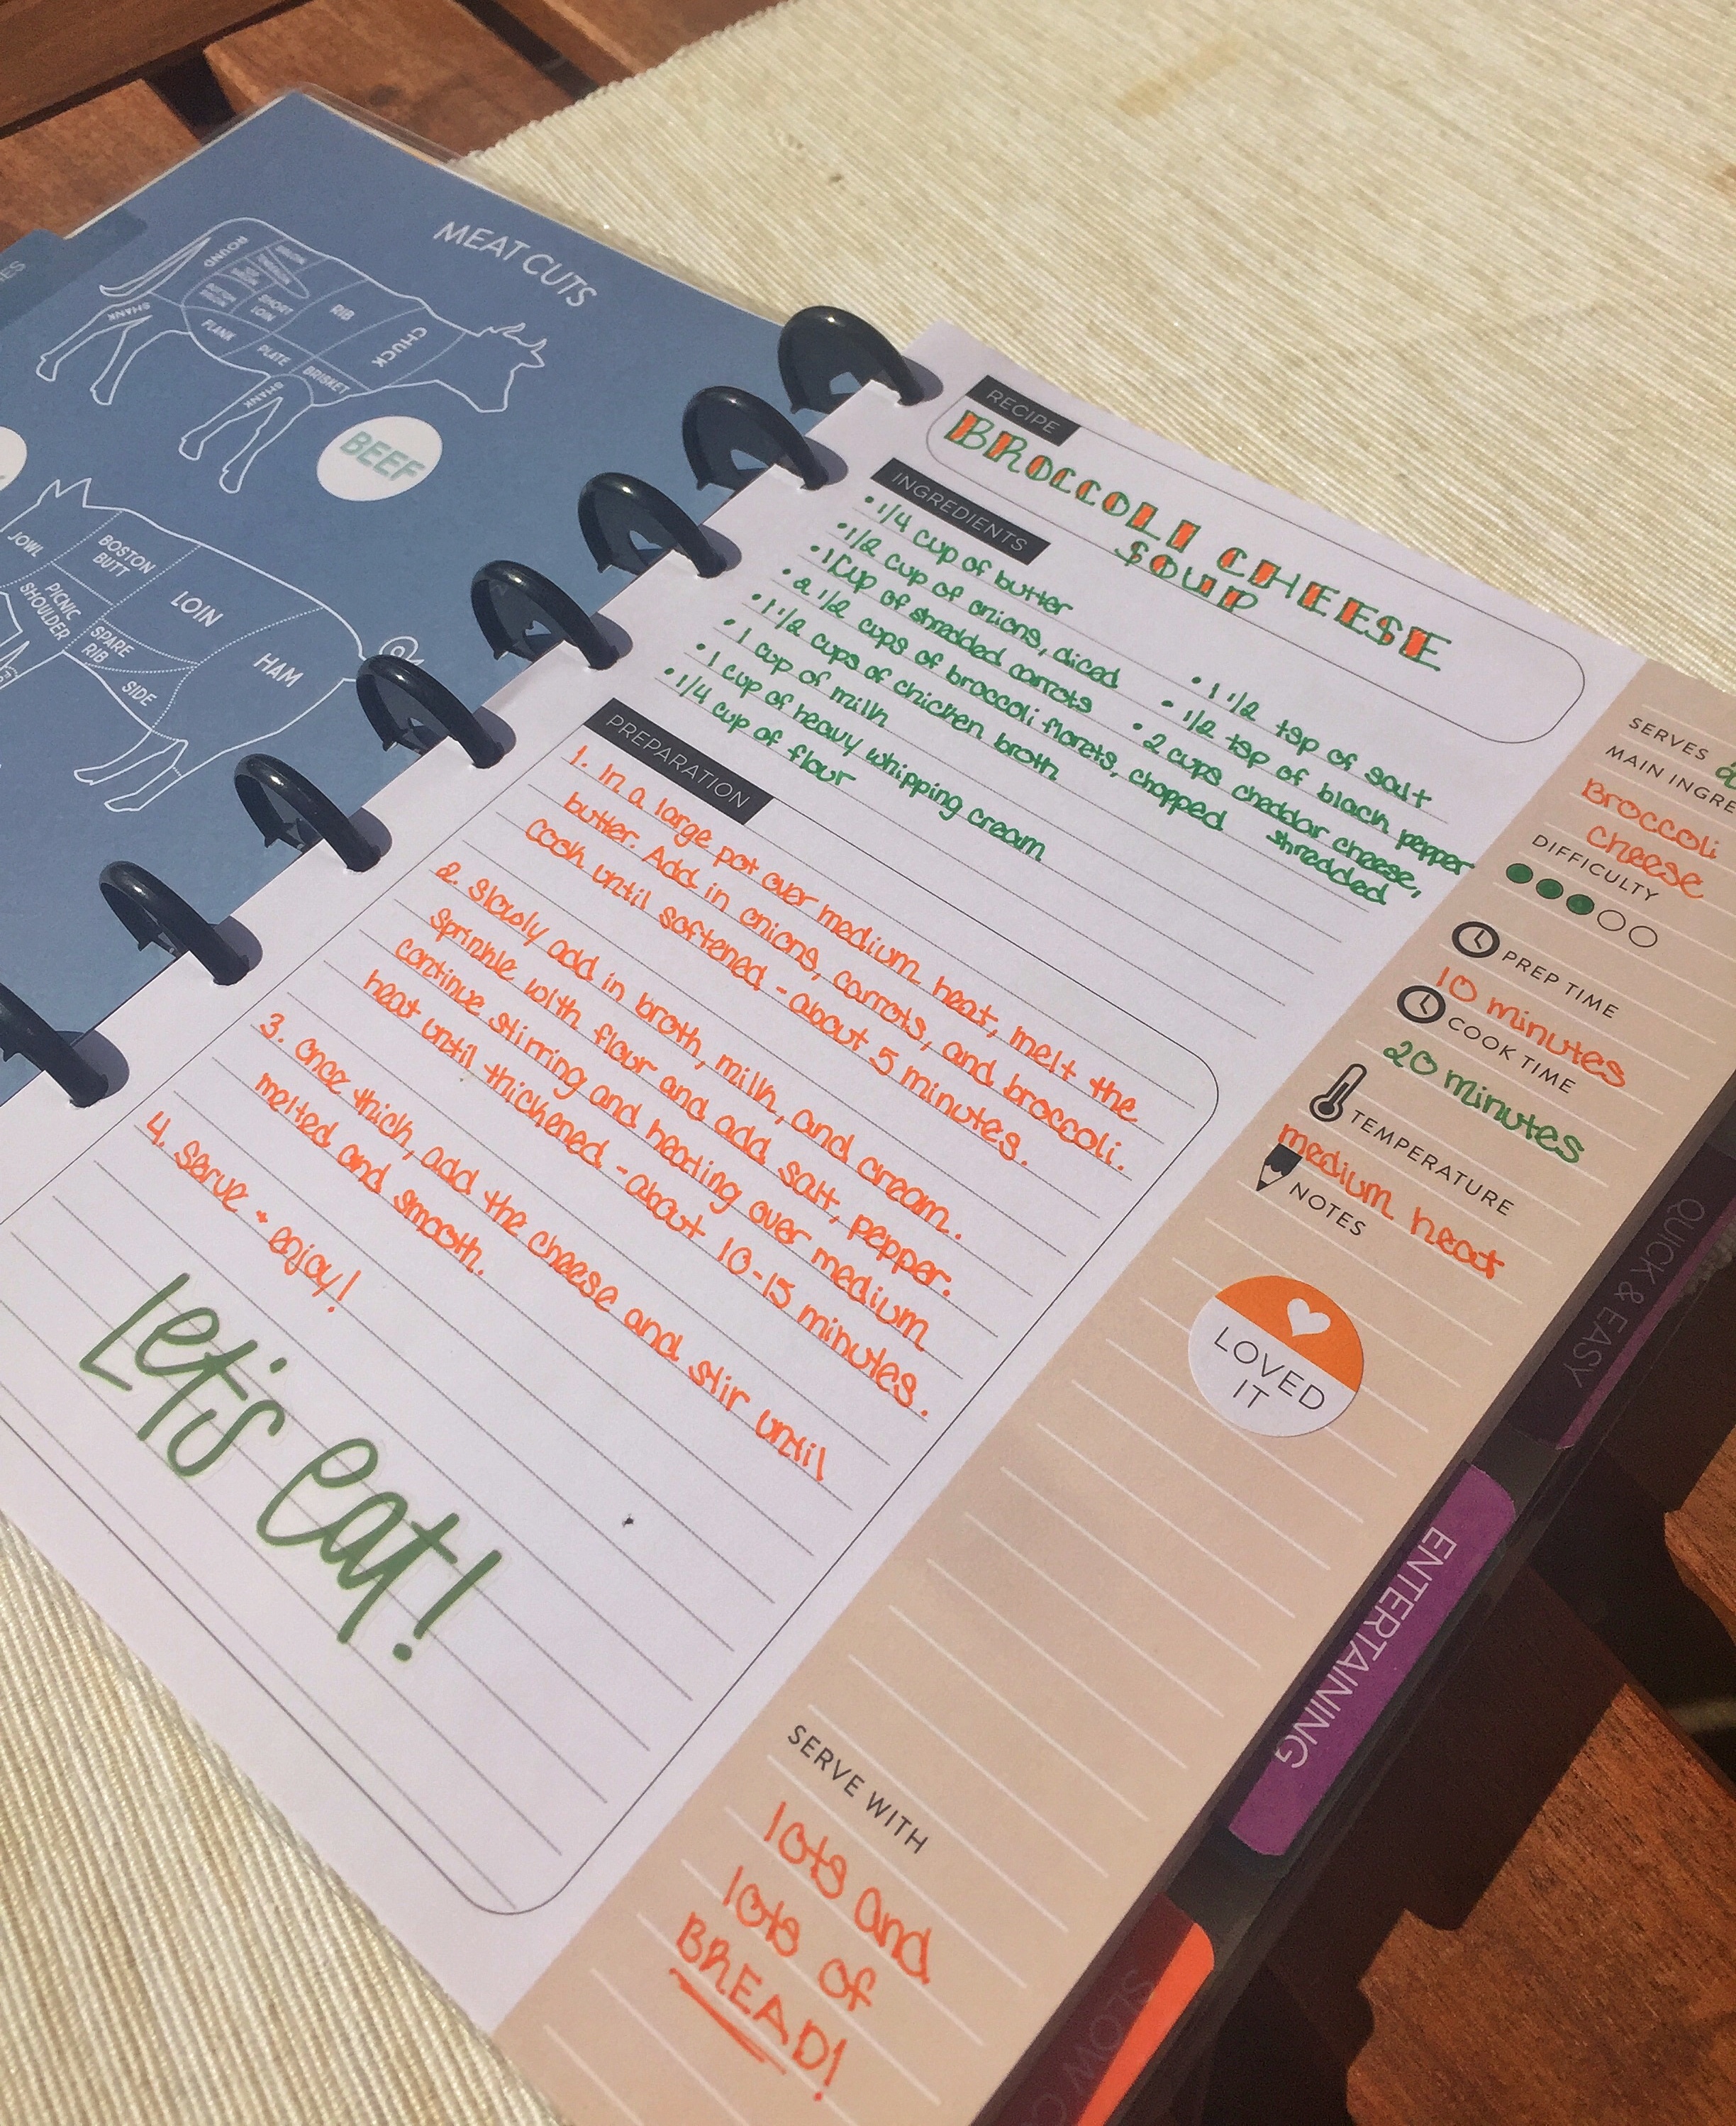 MEAT CUTS
ROUND
RIB
CHUCK
SHORT
LOIN
FLANK
PLATE
BRISKET
SHANK
SHANK
BEEF
JOWL
BOSTON
BUTT
LOIN
PICNIC
SHOULDER
SPARE
RIB
HAM
SIDE
RECIPE
BROCCOLI CHEESE
SOUP
INGREDIENTS
• 1/4 cup of butter
• 1/2 cup of onions, diced
• 1 cup of shredded carrots
• 2 1/2 cups of broccoli florets, chopped
• 1 1/2 cups of chicken broth
• 1 cup of milk
• 1 cup of heavy whipping cream
• 1/4 cup of flour
• 1 1/2 tsp of salt
• 1/2 tsp of black pepper
• 2 cups cheddar cheese,
shredded
PREPARATION
1. In a large pot over medium heat, melt the
butter. Add in onions, carrots, and broccoli.
Cook until softened - about 5 minutes.
2. Slowly add in broth, milk, and cream.
Sprinkle with flour and add salt, pepper.
Continue stirring and heating over medium
heat until thickened - about 10-15 minutes.
3. Once thick, add the cheese and stir until
melted and smooth.
4. Serve + enjoy!
Let's eat!
SERVES
MAIN INGRE
Broccoli
Cheese
DIFFICULTY
PREP TIME
10 minutes
COOK TIME
20 minutes
TEMPERATURE
medium heat
NOTES
LOVED
IT
SERVE WITH
lots and
lots of
BREAD!
QUICK & EASY
ENTERTAINING
SLOW C